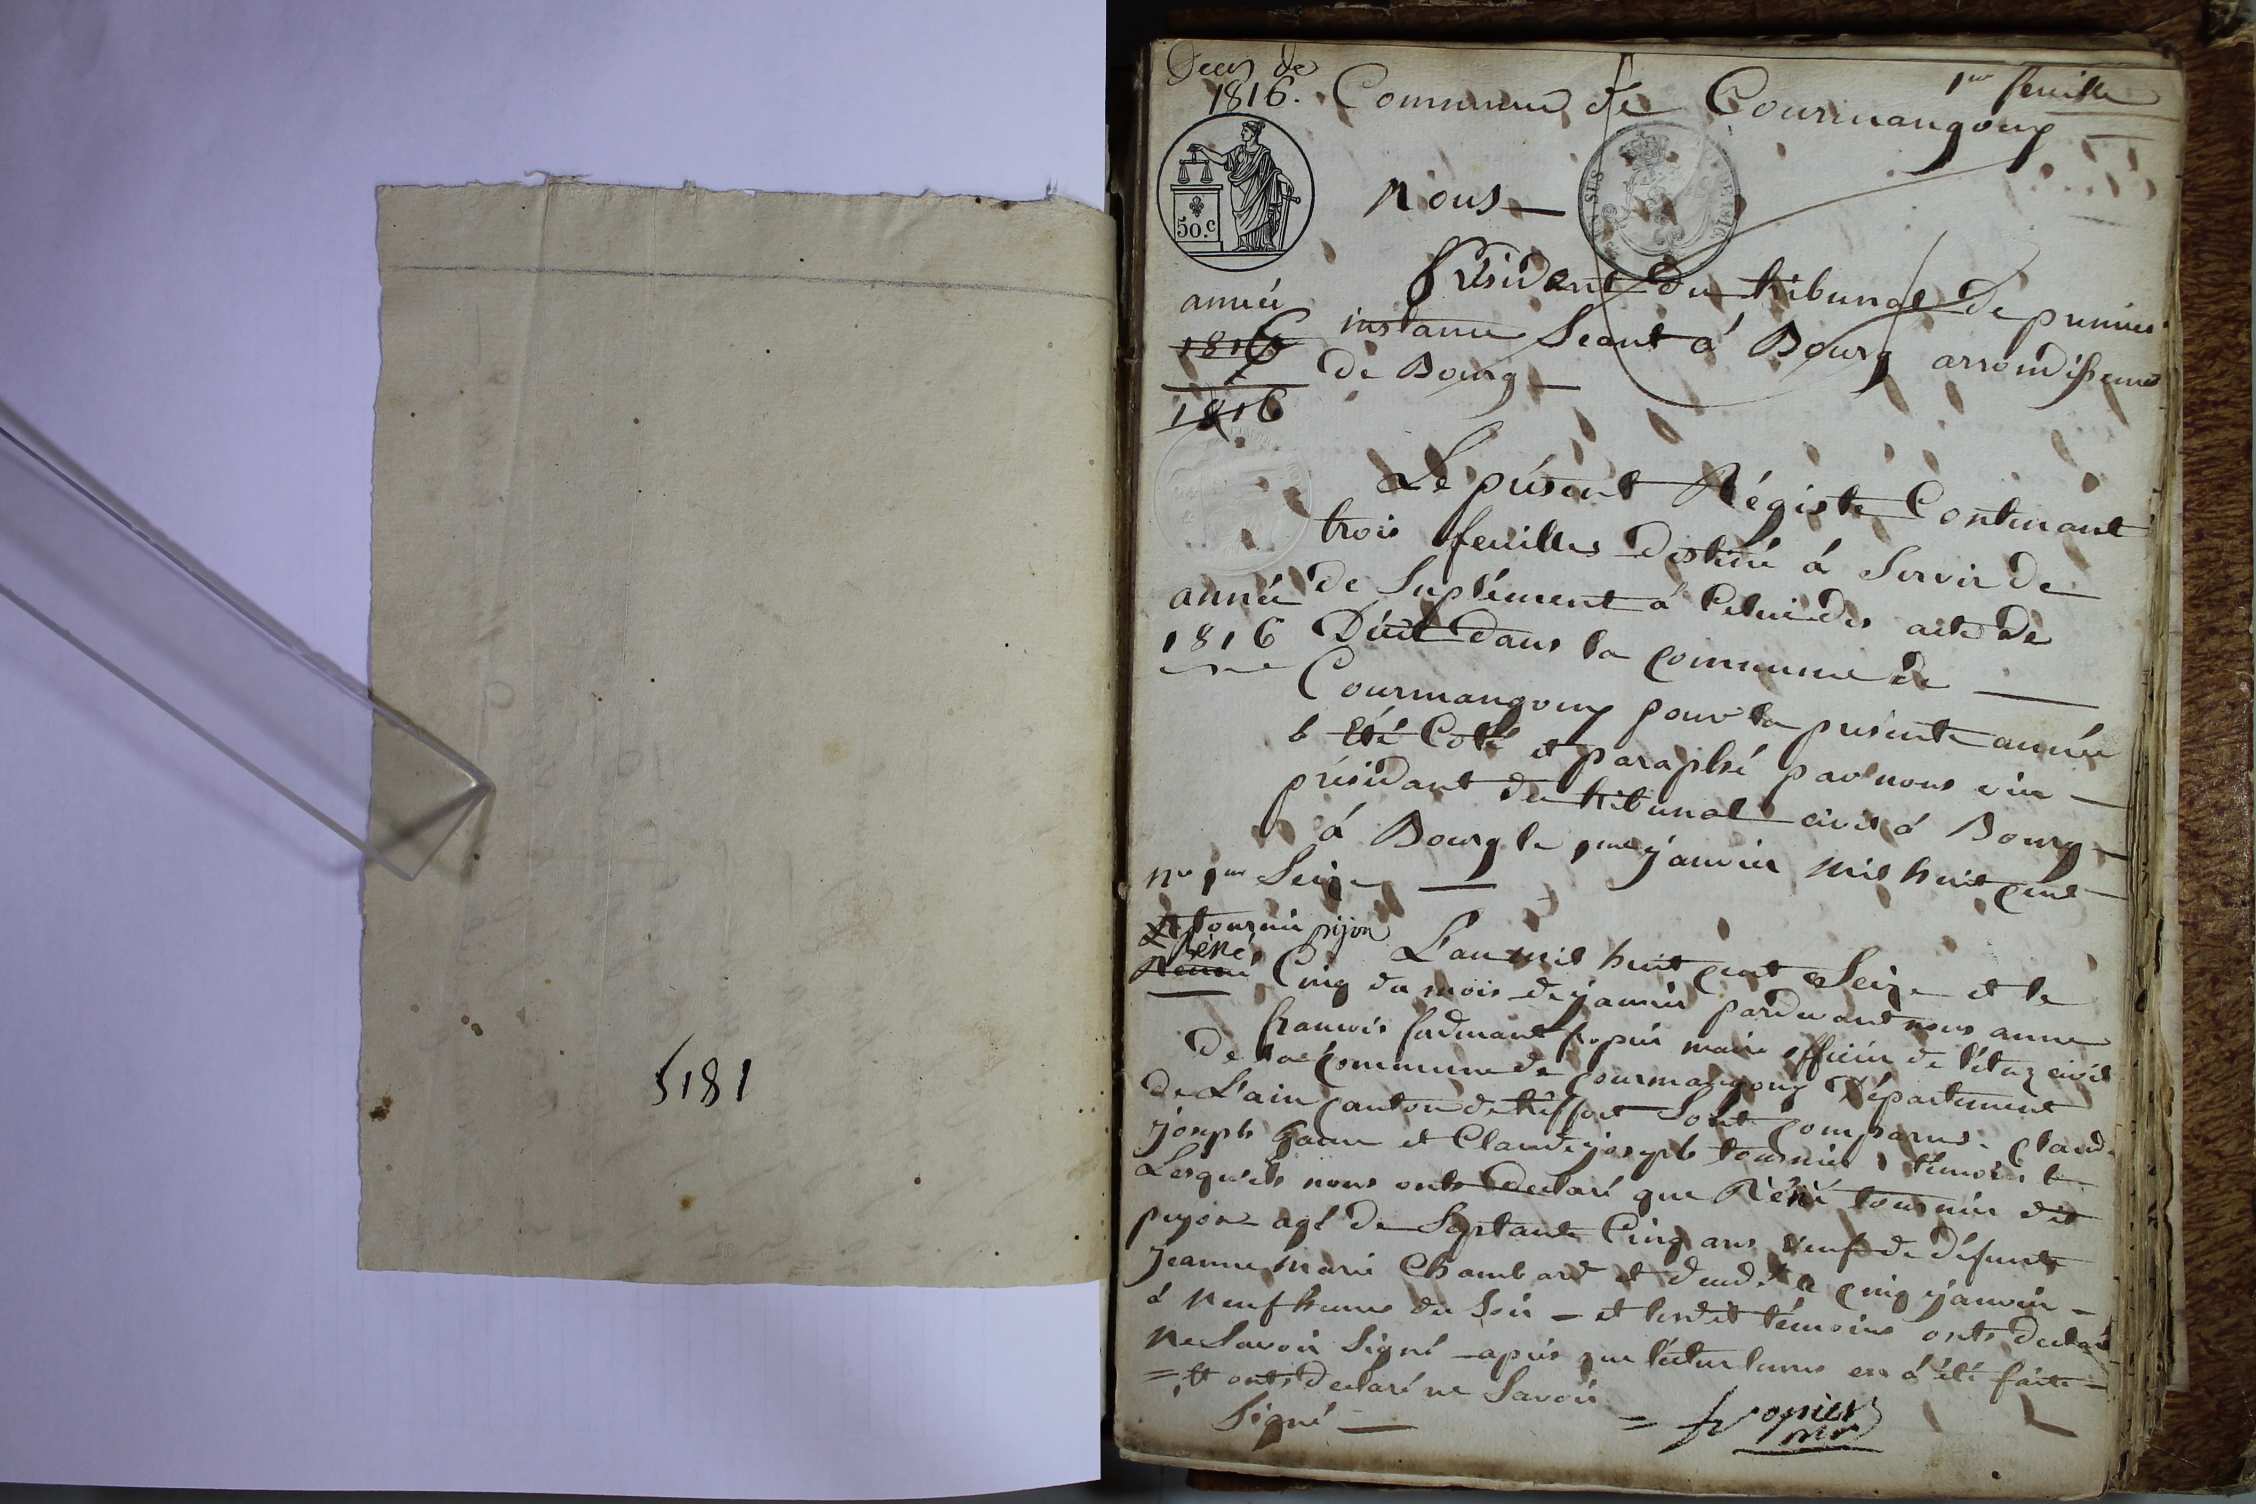 5181
Deces de
1816.
1er feuille
Commune de Courmangoux
50.c
nous
Président du tribunal de premier
instance Séant á Bourg arrondissement
de Bourg
année
1816
1816
Le présent Régistre Contenant
trois feuilles destiné á Servir de
de Suplément á Celui des acte de
Décét dans la commune de
année
1816
Courmangoux pour la présente année
été Coté et paraphé par nous
présidant du tribunal civil á Bourg
á Bourg le 1er janvier mil huit cent
Seize
no 1er
tournier pijon
Réné
L'an mil huit cent Seize et le
Cinq du mois de janvier pardevant nous anne
francois ferdinant fropier maire officier de l'étaz civil
de la Commune de Courmangoux Département
de L'ain canton de tréffort Sont comparus Claude
joseph et Claude joseph tournier témoins
Lesquels nous onts declaré que Réné tournier dit
peyon agé de Septante Cinq ans veuf de défunte
jeanne marie Chambard et deudét le cinq janvier
á neuf heures du Soir et lesdit témoins onts declaré
ne Savoir Signé apris que lécture leurs en á été faite
= et onts declaré ne Savoir
Signé
= fropier
mre